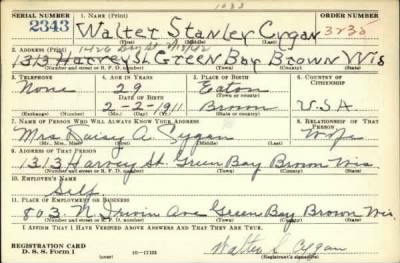 1033
SERIAL NUMBER 1. NAME (Print) ORDER NUMBER
2343 Walter Stanley Cygan 3235
(First) (Middle) (Last)
2. ADDRESS (Print)
1313 Harvey St. Green Bay Brown Wis
(Number and street or R. F. D. number) (Town) (County) (State)
3. TELEPHONE 4. AGE IN YEARS 5. PLACE OF BIRTH 6. COUNTRY OF CITIZENSHIP
None 29 Eaton
DATE OF BIRTH (Town or county)
2-2-1911 Brown U.S.A
(Exchange) (Number) (Mo.) (Day) (Yr.) (State or country)
7. NAME OF PERSON WHO WILL ALWAYS KNOW YOUR ADDRESS 8. RELATIONSHIP OF THAT PERSON
Mrs Daisy A. Cygan Wife
(Mr., Mrs., Miss) (First) (Middle) (Last)
9. ADDRESS OF THAT PERSON
1313 Harvey St. Green Bay Brown Wis
(Number and street or R. F. D. number) (Town) (County) (State)
10. EMPLOYER'S NAME
Self
11. PLACE OF EMPLOYMENT OR BUSINESS
803 N. Irwin Ave Green Bay Brown Wis
(Number and street or R. F. D. number) (Town) (County) (State)
I AFFIRM THAT I HAVE VERIFIED ABOVE ANSWERS AND THAT THEY ARE TRUE.
REGISTRATION CARD
D. S. S. Form 1 16—17105 Walter S. Cygan
(Registrant's signature)